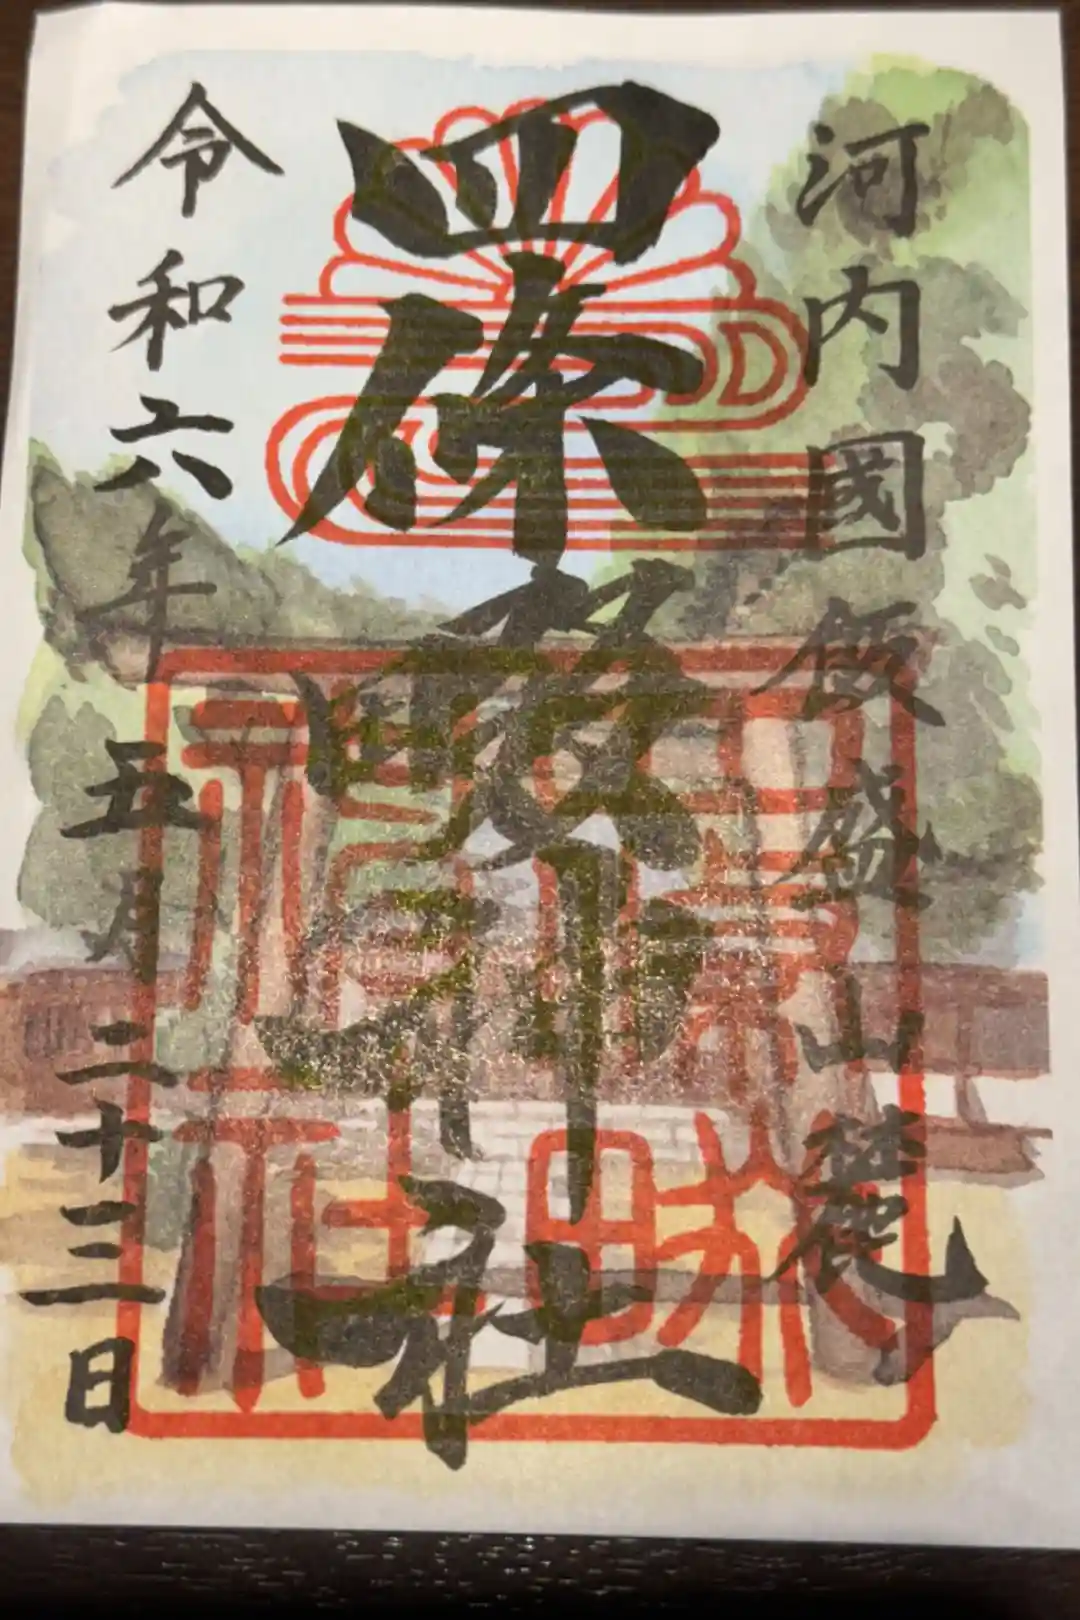 河内國飯盛山麓
四條畷神社
四條畷神社
令和六年五月二十三日